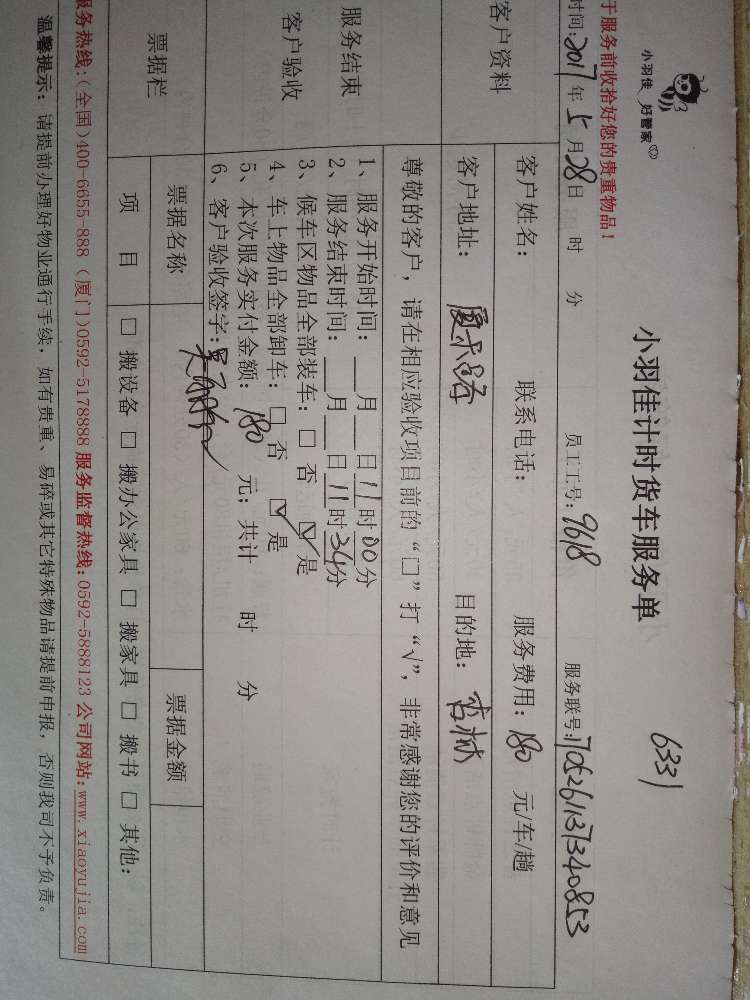 小羽佳 好管家
小羽佳计时货车服务单
6331
于服务前收拾好您的贵重物品！
时间：2017年5月28日 时 分 员工工号：9618 服务联号：1705261137340853
客户资料
客户姓名： 联系电话： 服务费用：180 元/车/趟
客户地址： 厦禾路 目的地： 杏林
服务结束
客户验收
尊敬的客户，请在相应验收项目前的“□”打“√”，非常感谢您的评价和意见
1、服务开始时间：___月___日11时00分
2、服务结束时间：___月___日11时34分
3、候车区物品全部装车：□ 否 ☑ 是
4、车上物品全部卸车：□ 否 ☑ 是
5、本次服务实付金额：180 元；共计 时 分
6、客户验收签字：
票据栏
票据名称 票据金额
项 目 □ 搬设备 □ 搬办公家具 □ 搬家具 □ 搬书 □ 其他：
服务热线：(全国)400-6655-888 (厦门)0592-5178888 服务监督热线：0592-5888123 公司网站：www.xiaoyujia.com
温馨提示：请提前办理好物业通行手续，如有贵重、易碎或其它特殊物品请提前申报，否则我司不予负责。